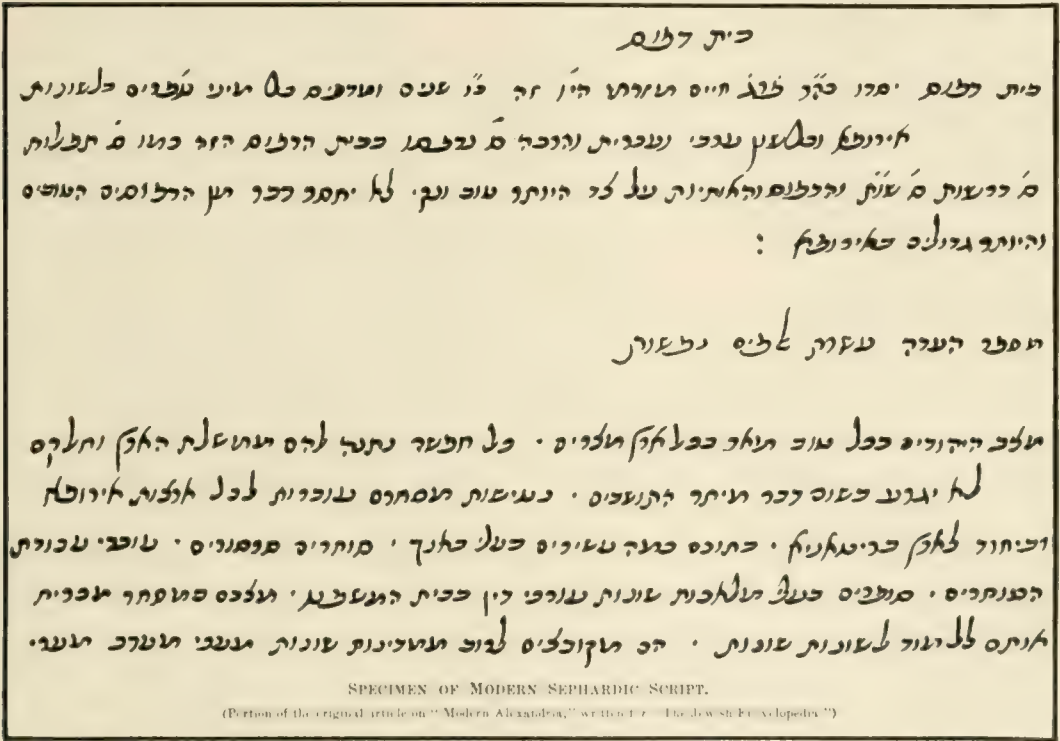 בית דפוס
בית דפוס יסדו כה״ר פרג׳ חיים מזרחי הי״ו זה כ״ו שנים ומדפיס כל מיני ספרים בלשונות
אירופא ובלשון ערבי ועברית והרבה ס׳ נדפסו בבית הדפוס הזה כמו ס׳ תפלות
ס׳ דרשות ס׳ שו״ת והדפוס והאותיות על צד היותר טוב ונקי לא יחסר דבר מן הדפוסים הטובים
והיותר גדולים באירופא :
מספר העדה עשרת אלפים נפשות
מצב היהודים בכל טוב תואר בכל ארץ מצרים · כל חפשה נתנה להם מממשלת הארץ וחלקם
לא יגרע בשום דבר מיתר התושבים · מסחרם עוברות לכל ארצות אירופא
וביחוד לארץ בריטאניא · בתוכם כמה עשירים בעלי באנק · סוחרים סרסורים · עובדי עבודת
הסוחרים · סופרים בעלי מלאכות שונות עורכי דין בבית המשפט · מצבם במסחר מכרית
אותם ללמוד לשונות שונות · הם מקובצים לרוב ממדינות שונות מערב
SPECIMEN OF MODERN SEPHARDIC SCRIPT.
(Portion of the original article on "Modern Alexandria," written for "The Jewish Encyclopedia")